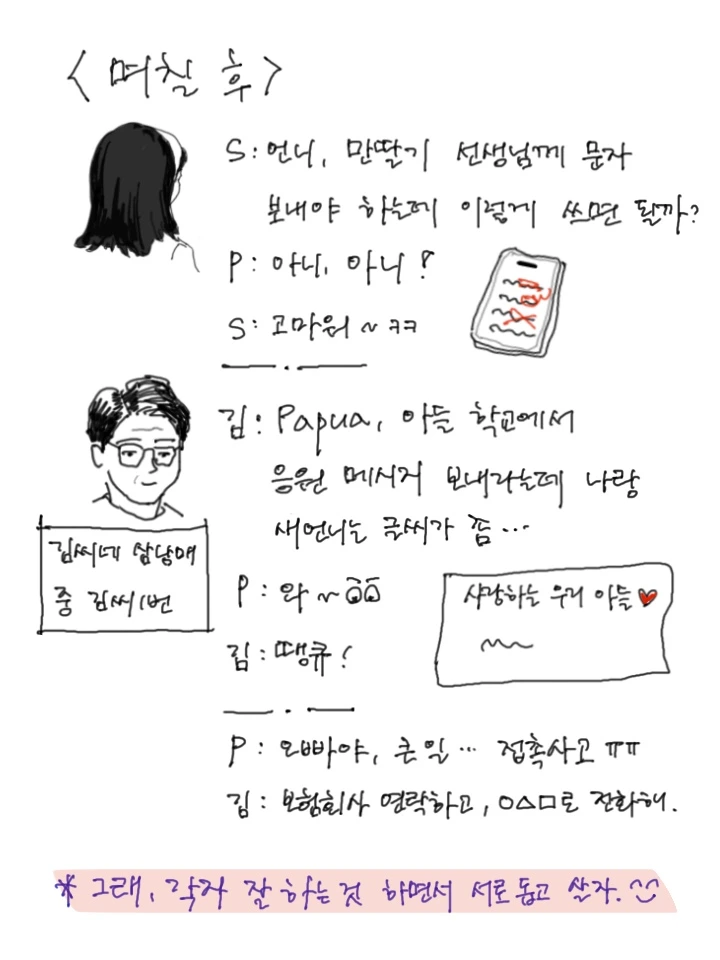 <며칠 후>
S: 언니, 만딸기 선생님께 문자
보내야 하는데 이렇게 쓰면 될까?
P: 아니, 아니!
S: 고마워~ ㅋㅋ
김: Papua, 아들 학교에서
응원 메시지 보내라는데 나랑
새언니는 글씨가 좀…
김씨네 삼남매
중 김씨1번
P: 와~
사랑하는 우리 아들♥
김: 땡큐!
P: 오빠야, 큰일… 접촉사고 ㅠㅠ
김: 보험회사 연락하고, ㅇ△ㅁ로 전화해.
* 그래, 각자 잘 하는 것 하면서 서로 돕고 살자.